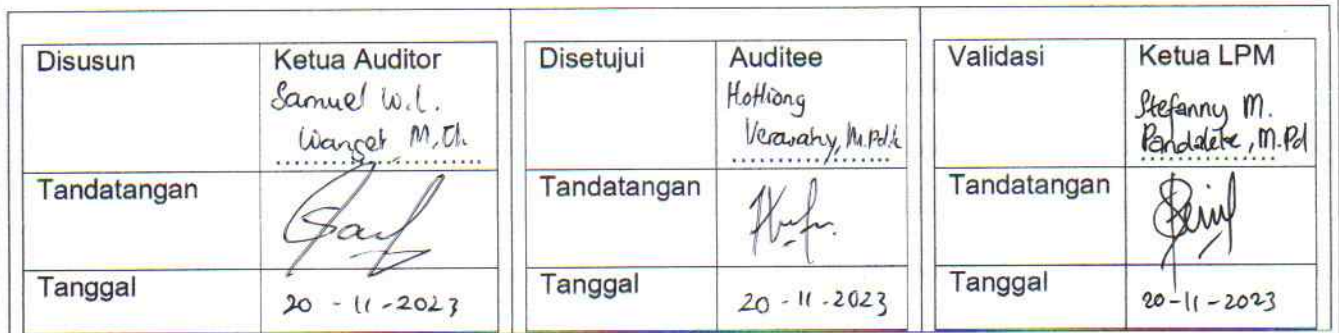 Disusun Ketua Auditor
Samuel W.L.
M.Th.
Tandatangan
Tanggal 20 - 11 - 2023
Disetujui Auditee
Verawaty, M.Pd.K
Tandatangan
Tanggal 20 - 11 - 2023
Validasi Ketua LPM
Stefanny M.
Pandaleke, M.Pd
Tandatangan
Tanggal 20-11-2023